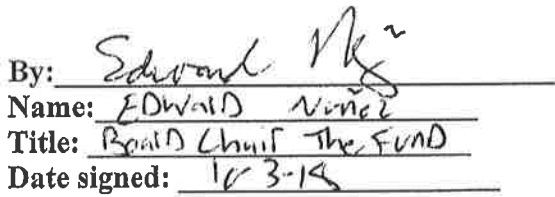 By: Edward
Name: EDWARD Nuñez
Title: Board Chair The Fund
Date signed: